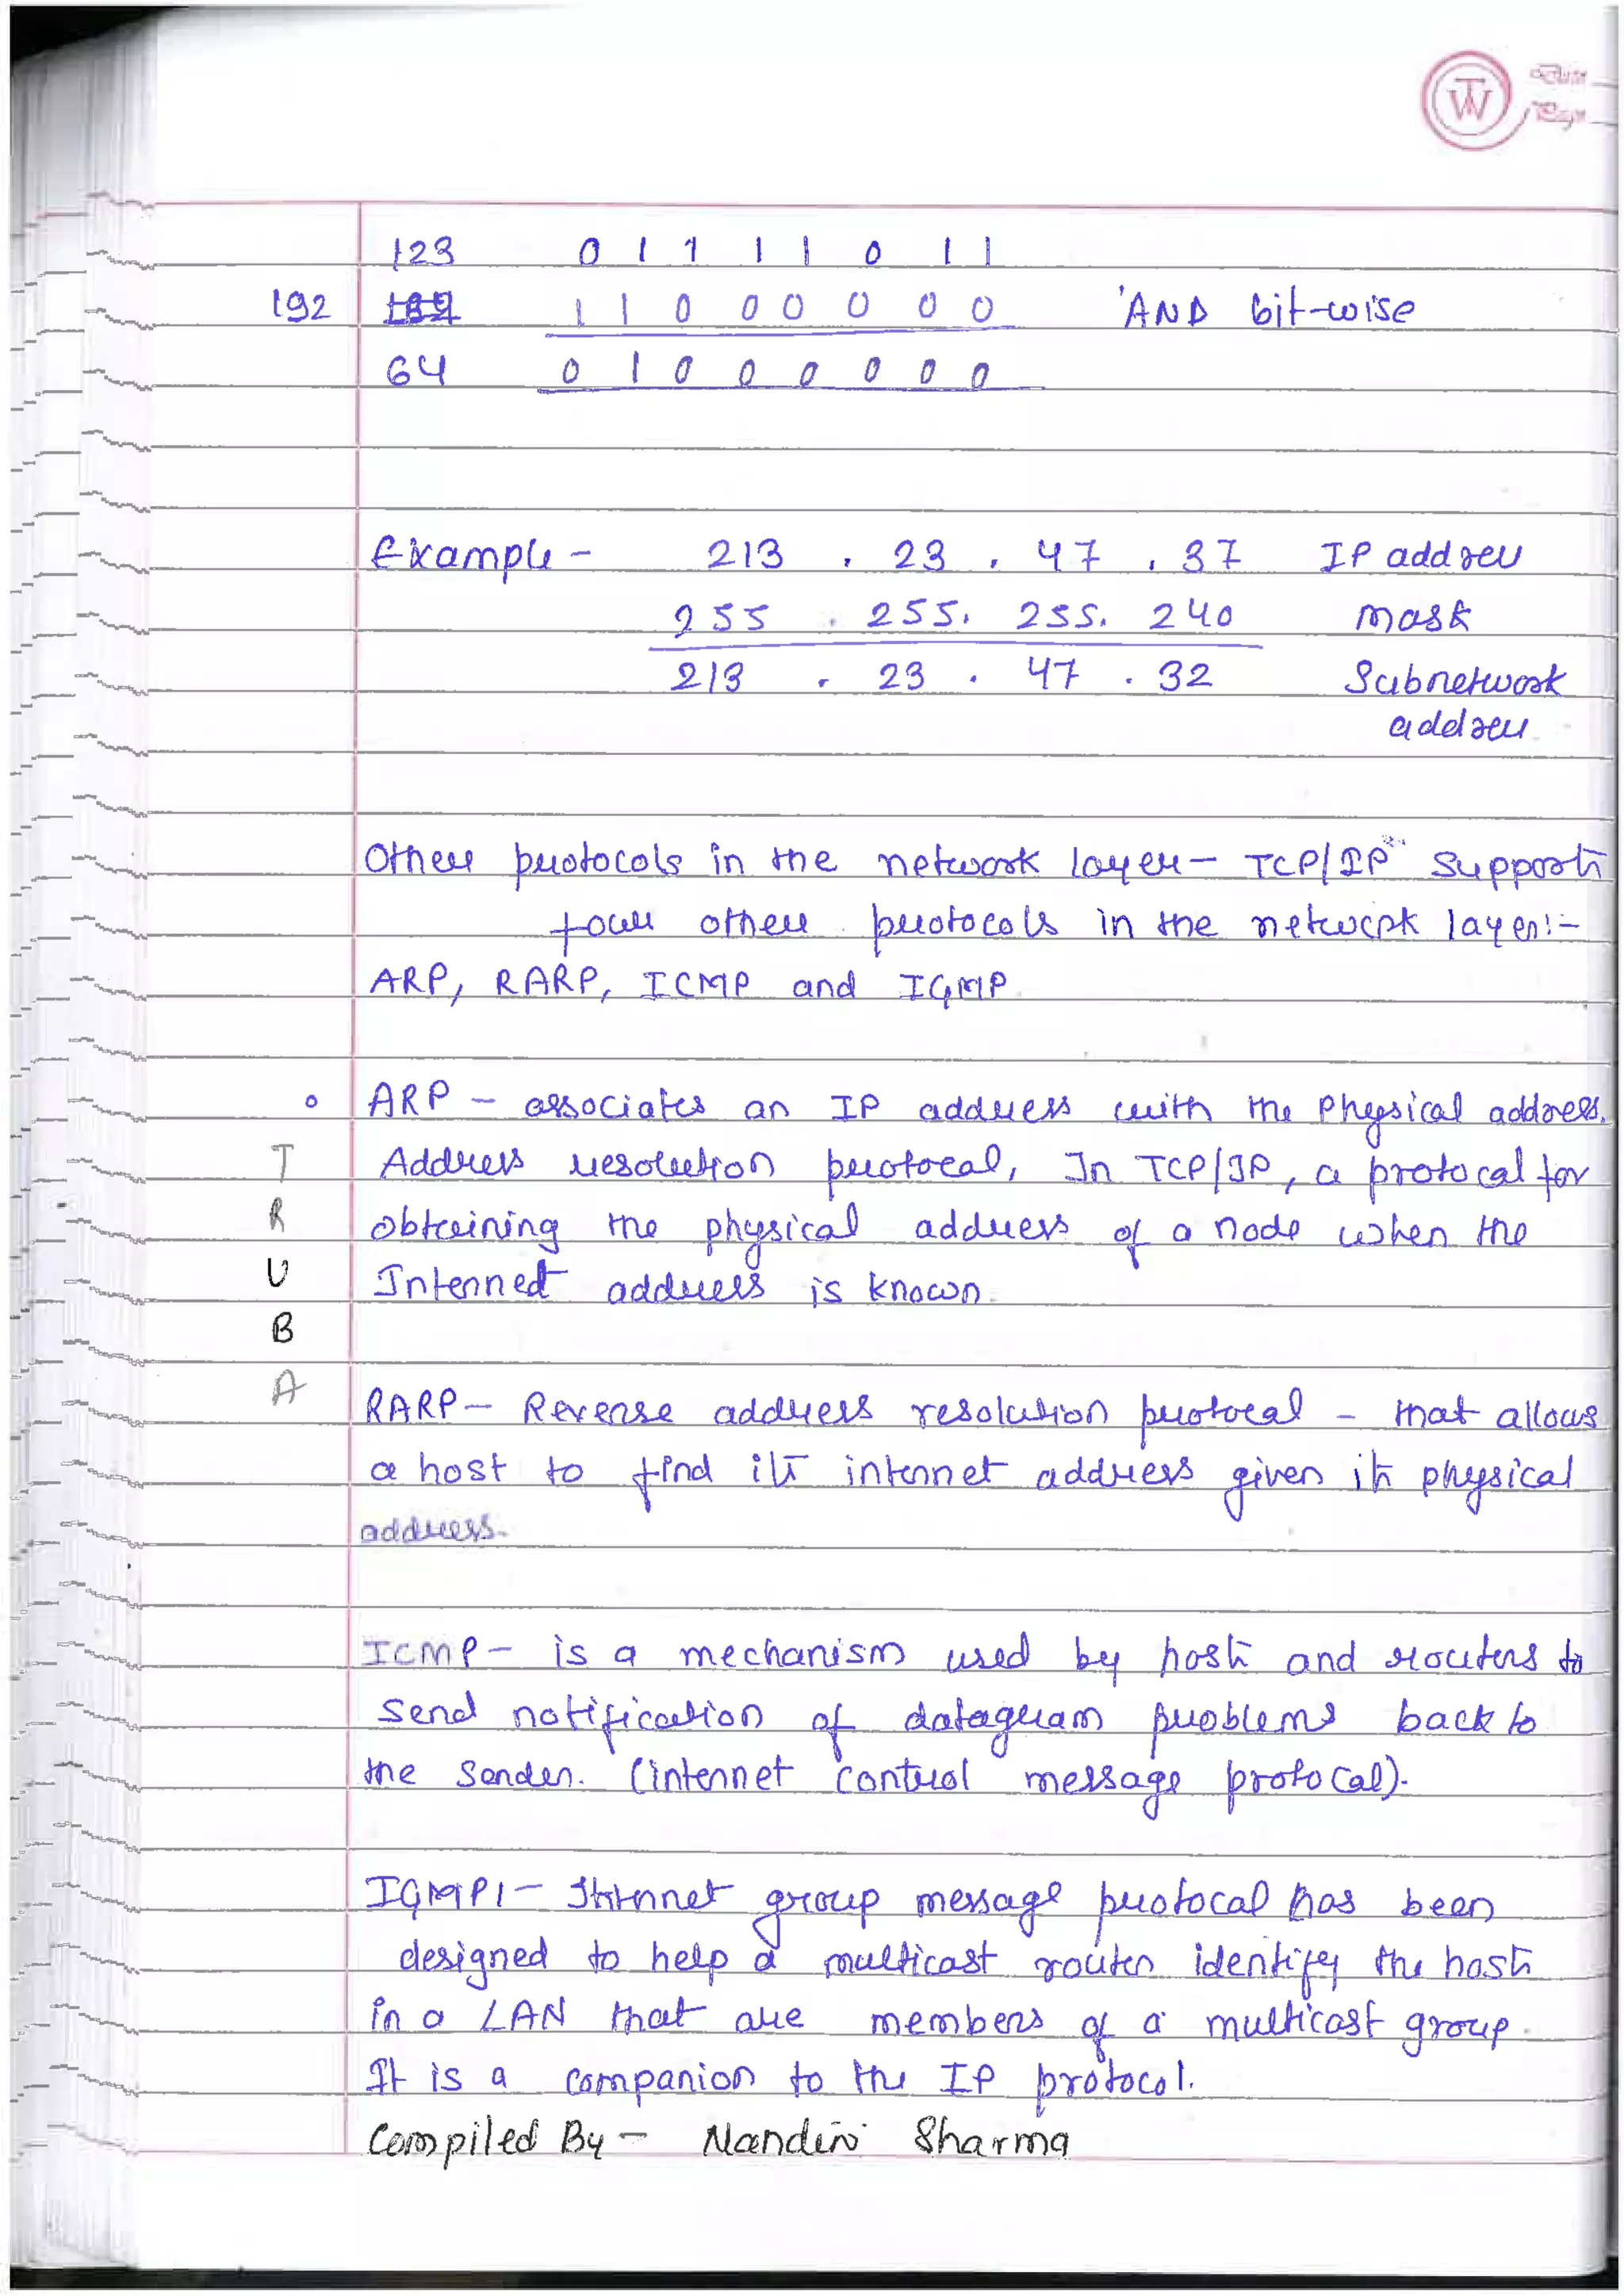 TW Date
Page
123 0 1 1 1 1 0 1 1
192 1 1 0 0 0 0 0 0 AND bit-wise
64 0 1 0 0 0 0 0 0
Example - 213 . 23 . 47 . 37 IP address
255 . 255. 255. 240 mask
213 . 23 . 47 . 32 Subnetwork
address
Other protocols in the network layer - TCP/IP supports
four other protocols in the network layer:-
ARP, RARP, ICMP and IGMP
ARP - associates an IP address with the physical address.
T Address resolution protocal, In TCP/IP, a protocal for
R obtaining the physical address of a node when the
U Internet address is known.
B
A RARP - Reverse address resolution protocal - that allows
a host to find its internet address given its physical
address.
ICMP - is a mechanism used by hosts and routers to
send notification of datagram problems back to
the sender. (internet control message protocal).
IGMP1 - Internet group message protocal has been
designed to help a multicast router identify the hosts
in a LAN that are members of a multicast group.
It is a companion to the IP protocol.
Compiled By - Nandini Sharma